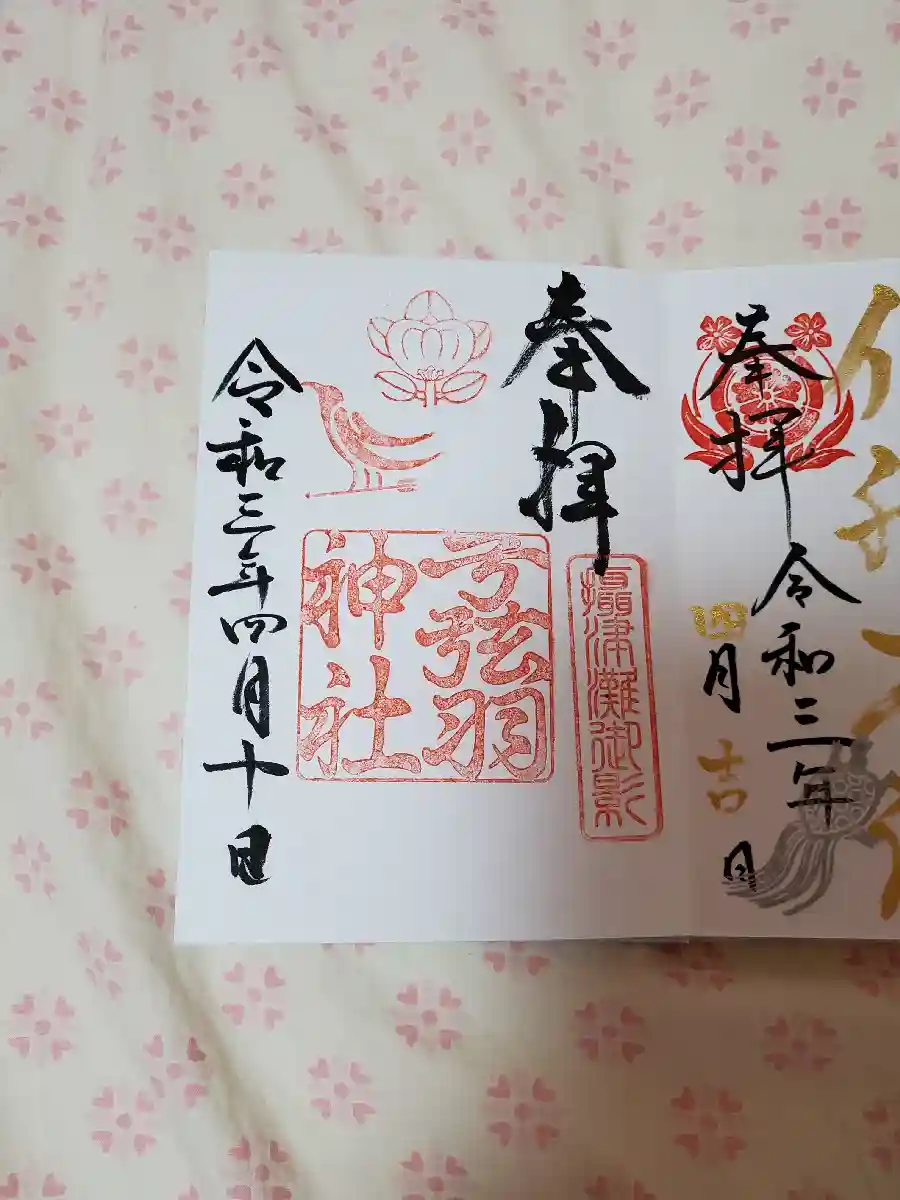 奉拝
令和三年
四月吉日
奉拝
摂津灘御影
弓弦羽
神社
令和三年四月十日